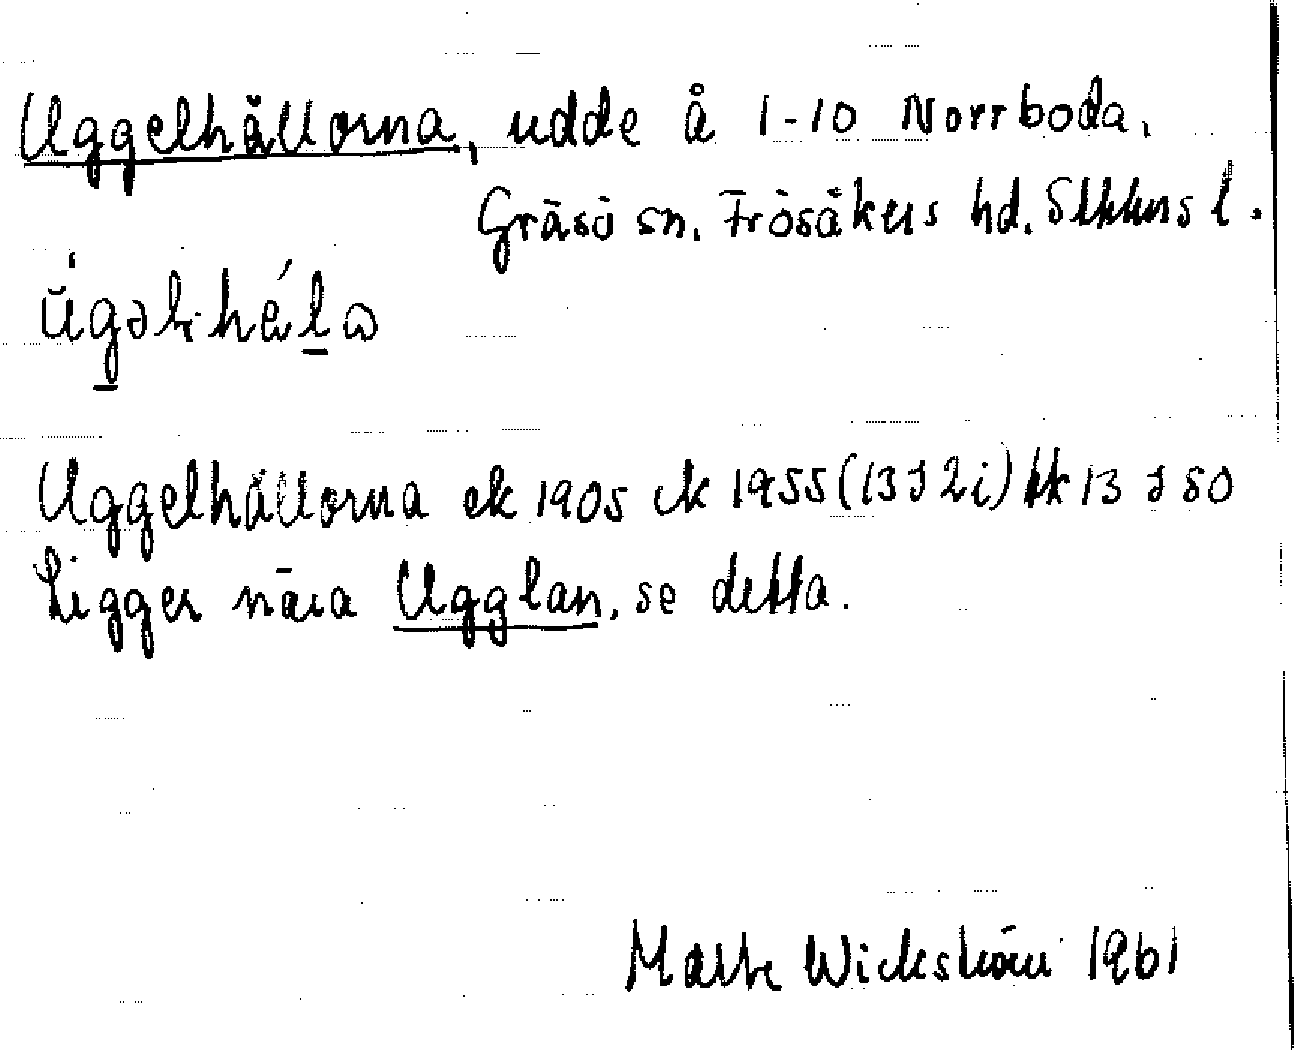 Uggelhällorna, udde å 1-10 Norrboda.
Gräsö sn. Frösåkers hd. Sthlms l.
Uggelhällorna ek 1905 ek 1955 (13 J 2i) bk 13 J 50
Ligger nära Ugglan, se detta.
Wickström 1961